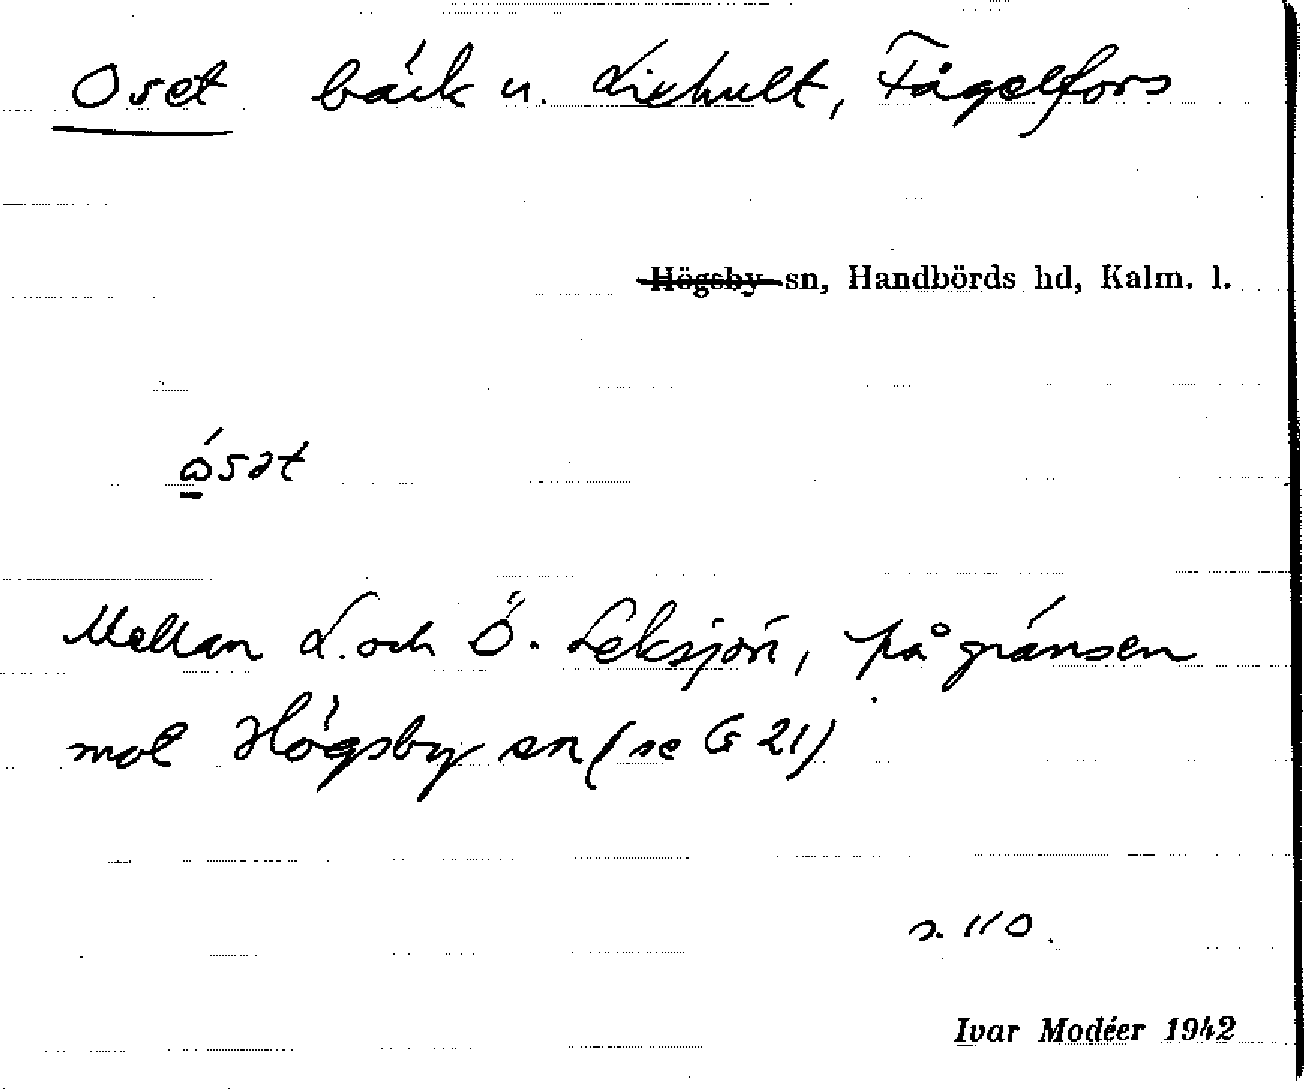 Oset bäck u. Lixhult, Fågelfors
Högsby sn, Handbörds hd, Kalm. l.
ósət
Mellan L. och Ö. Leksjön, på gränsen
mot Högsby sn (se G 21)
s. 110.
Ivar Modéer 1942